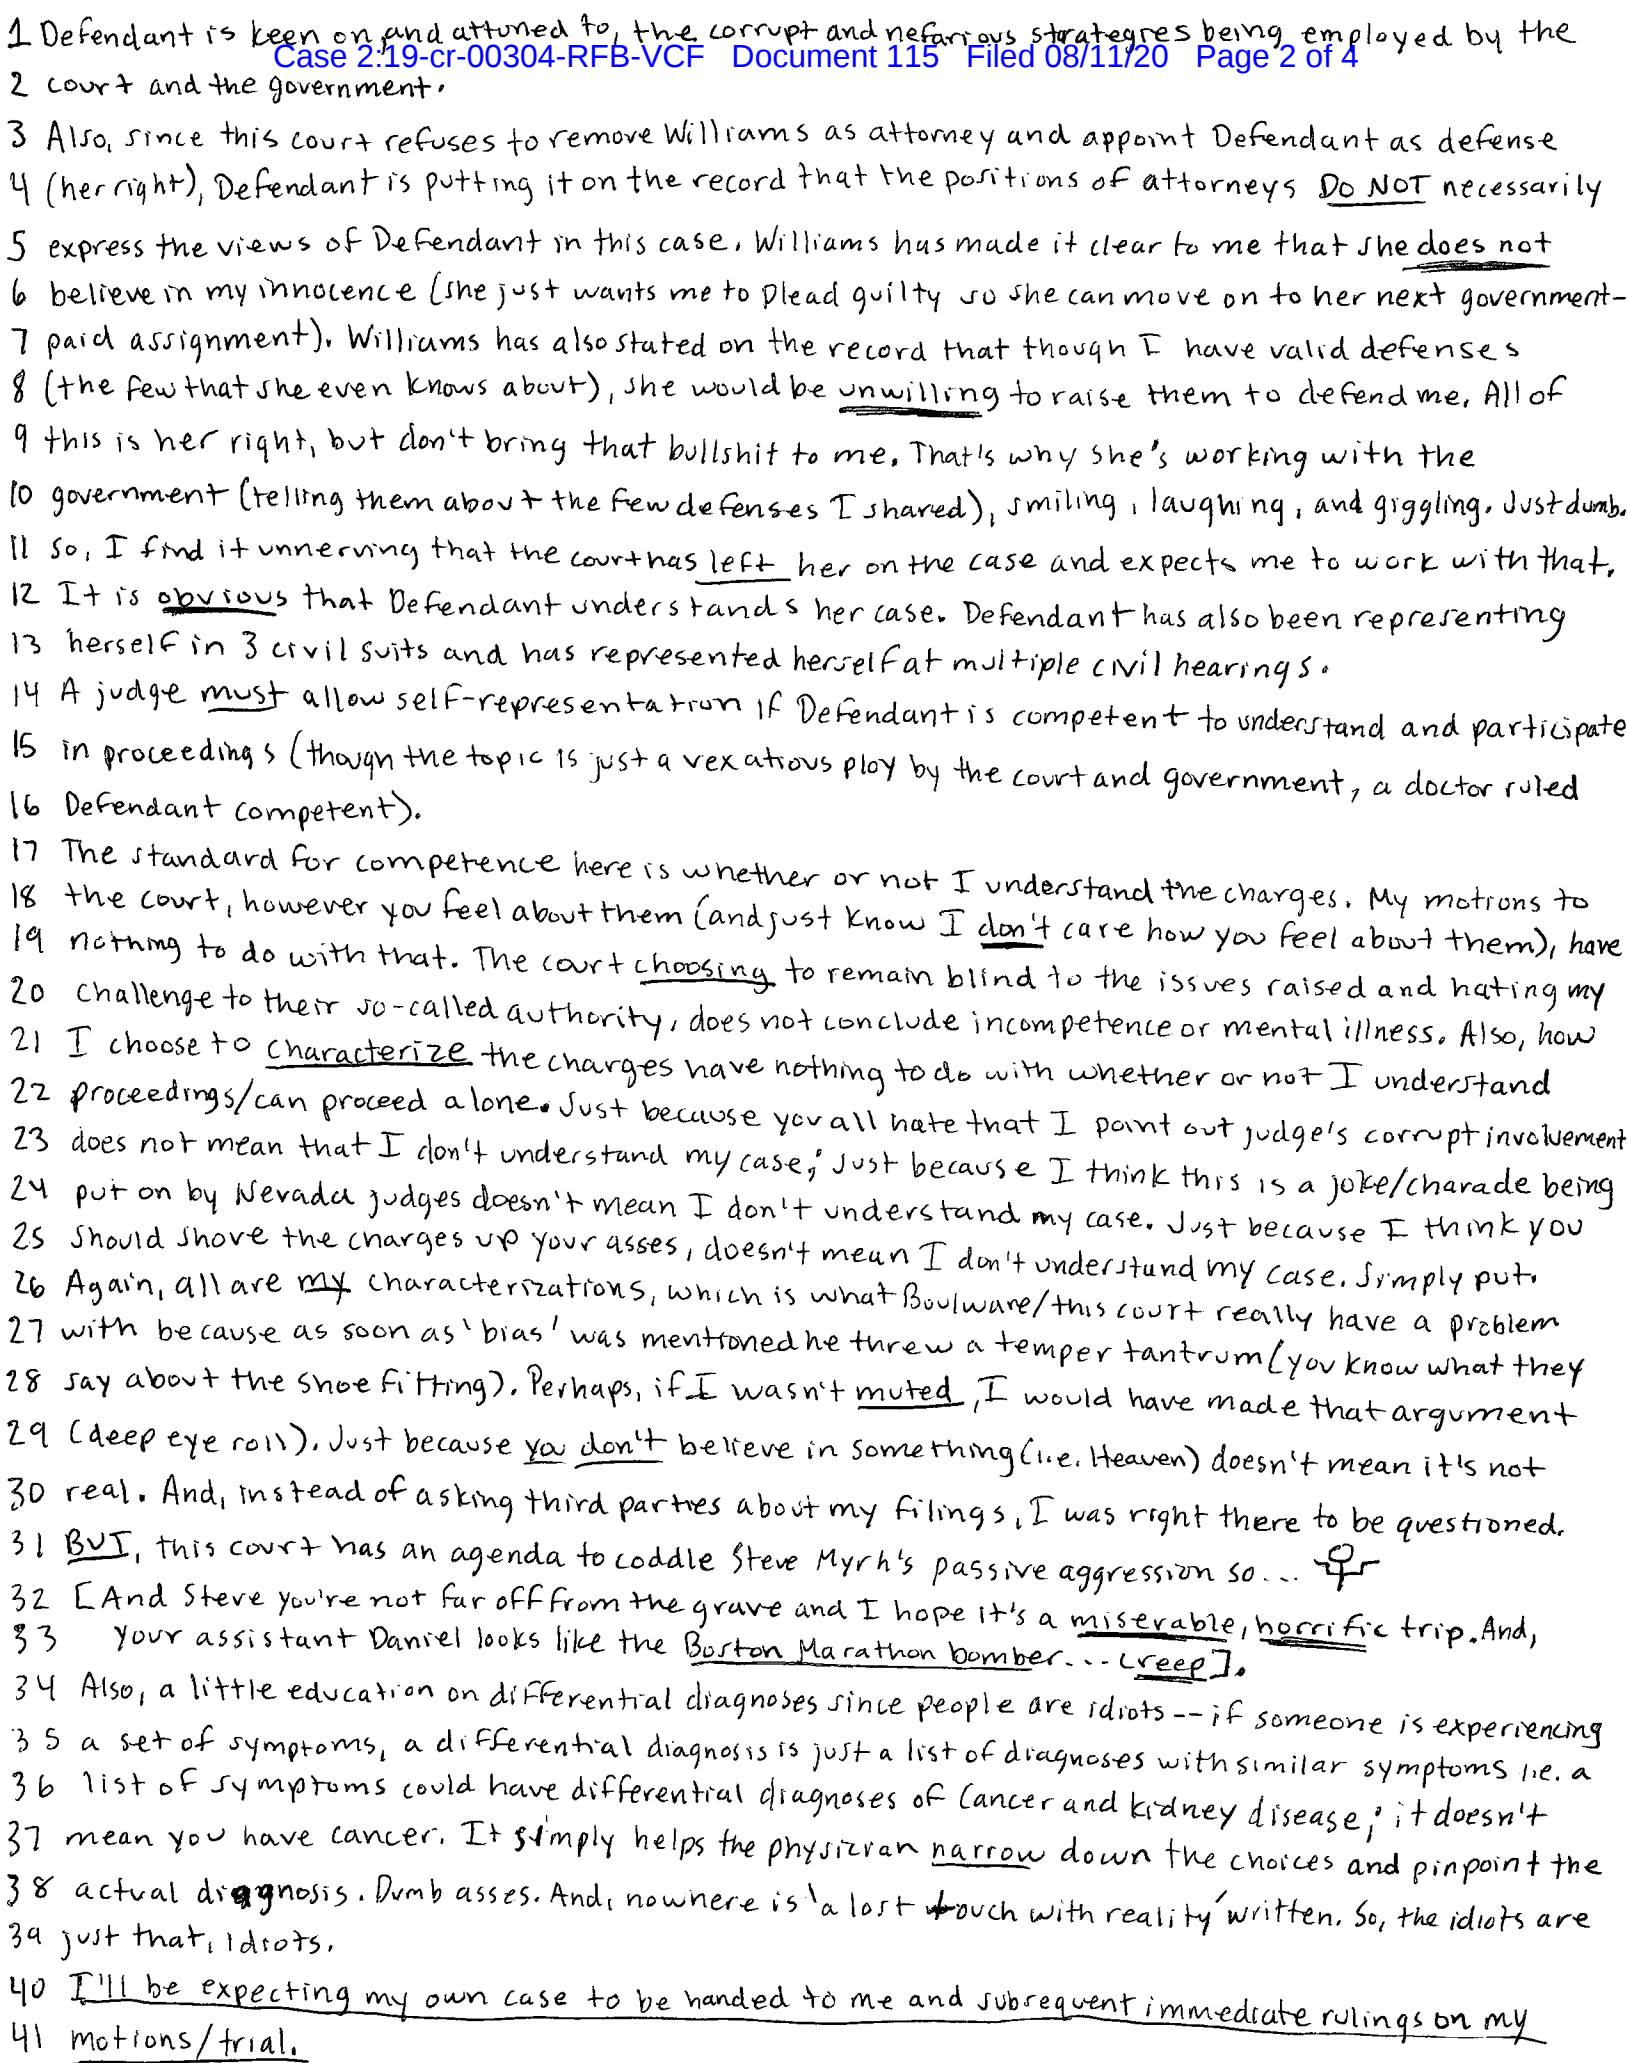 1 Defendant is keen on, and attuned to, the corrupt and nefarious strategies being employed by the
Case 2:19-cr-00304-RFB-VCF Document 115 Filed 08/11/20 Page 2 of 4
2 court and the government.
3 Also, since this court refuses to remove Williams as attorney and appoint Defendant as defense
4 (her right), Defendant is putting it on the record that the positions of attorneys DO NOT necessarily
5 express the views of Defendant in this case. Williams has made it clear to me that she does not
6 believe in my innocence (she just wants me to plead guilty so she can move on to her next government-
7 paid assignment). Williams has also stated on the record that though I have valid defenses
8 (the few that she even knows about), she would be unwilling to raise them to defend me. All of
9 this is her right, but don't bring that bullshit to me. That's why she's working with the
10 government (telling them about the few defenses I shared), smiling, laughing, and giggling. Just dumb.
11 So, I find it unnerving that the court has left her on the case and expects me to work with that.
12 It is obvious that Defendant understands her case. Defendant has also been representing
13 herself in 3 civil suits and has represented herself at multiple civil hearings.
14 A judge must allow self-representation if Defendant is competent to understand and participate
15 in proceedings (though the topic is just a vexatious ploy by the court and government, a doctor ruled
16 Defendant competent).
17 The standard for competence here is whether or not I understand the charges. My motions to
18 the court, however you feel about them (and just know I don't care how you feel about them), have
19 nothing to do with that. The court choosing to remain blind to the issues raised and hating my
20 challenge to their so-called authority, does not conclude incompetence or mental illness. Also, how
21 I choose to characterize the charges have nothing to do with whether or not I understand
22 proceedings/can proceed alone. Just because you all hate that I point out judge's corrupt involvement
23 does not mean that I don't understand my case; Just because I think this is a joke/charade being
24 put on by Nevada judges doesn't mean I don't understand my case. Just because I think you
25 should shove the charges up your asses, doesn't mean I don't understand my case. Simply put.
26 Again, all are my characterizations, which is what Boulware/this court really have a problem
27 with because as soon as 'bias' was mentioned he threw a temper tantrum (you know what they
28 say about the shoe fitting). Perhaps, if I wasn't muted, I would have made that argument
29 (deep eye roll). Just because you don't believe in something (i.e. Heaven) doesn't mean it's not
30 real. And, instead of asking third parties about my filings, I was right there to be questioned.
31 BUT, this court has an agenda to coddle Steve Myrh's passive aggression so...
32 [And Steve you're not far off from the grave and I hope it's a miserable, horrific trip. And,
33 your assistant Daniel looks like the Boston Marathon bomber... creep].
34 Also, a little education on differential diagnoses since people are idiots -- if someone is experiencing
35 a set of symptoms, a differential diagnosis is just a list of diagnoses with similar symptoms i.e. a
36 list of symptoms could have differential diagnoses of cancer and kidney disease; it doesn't
37 mean you have cancer. It simply helps the physician narrow down the choices and pinpoint the
38 actual diagnosis. Dumb asses. And, nowhere is 'a lost touch with reality' written. So, the idiots are
39 just that, idiots.
40 I'll be expecting my own case to be handed to me and subsequent immediate rulings on my
41 motions/trial.